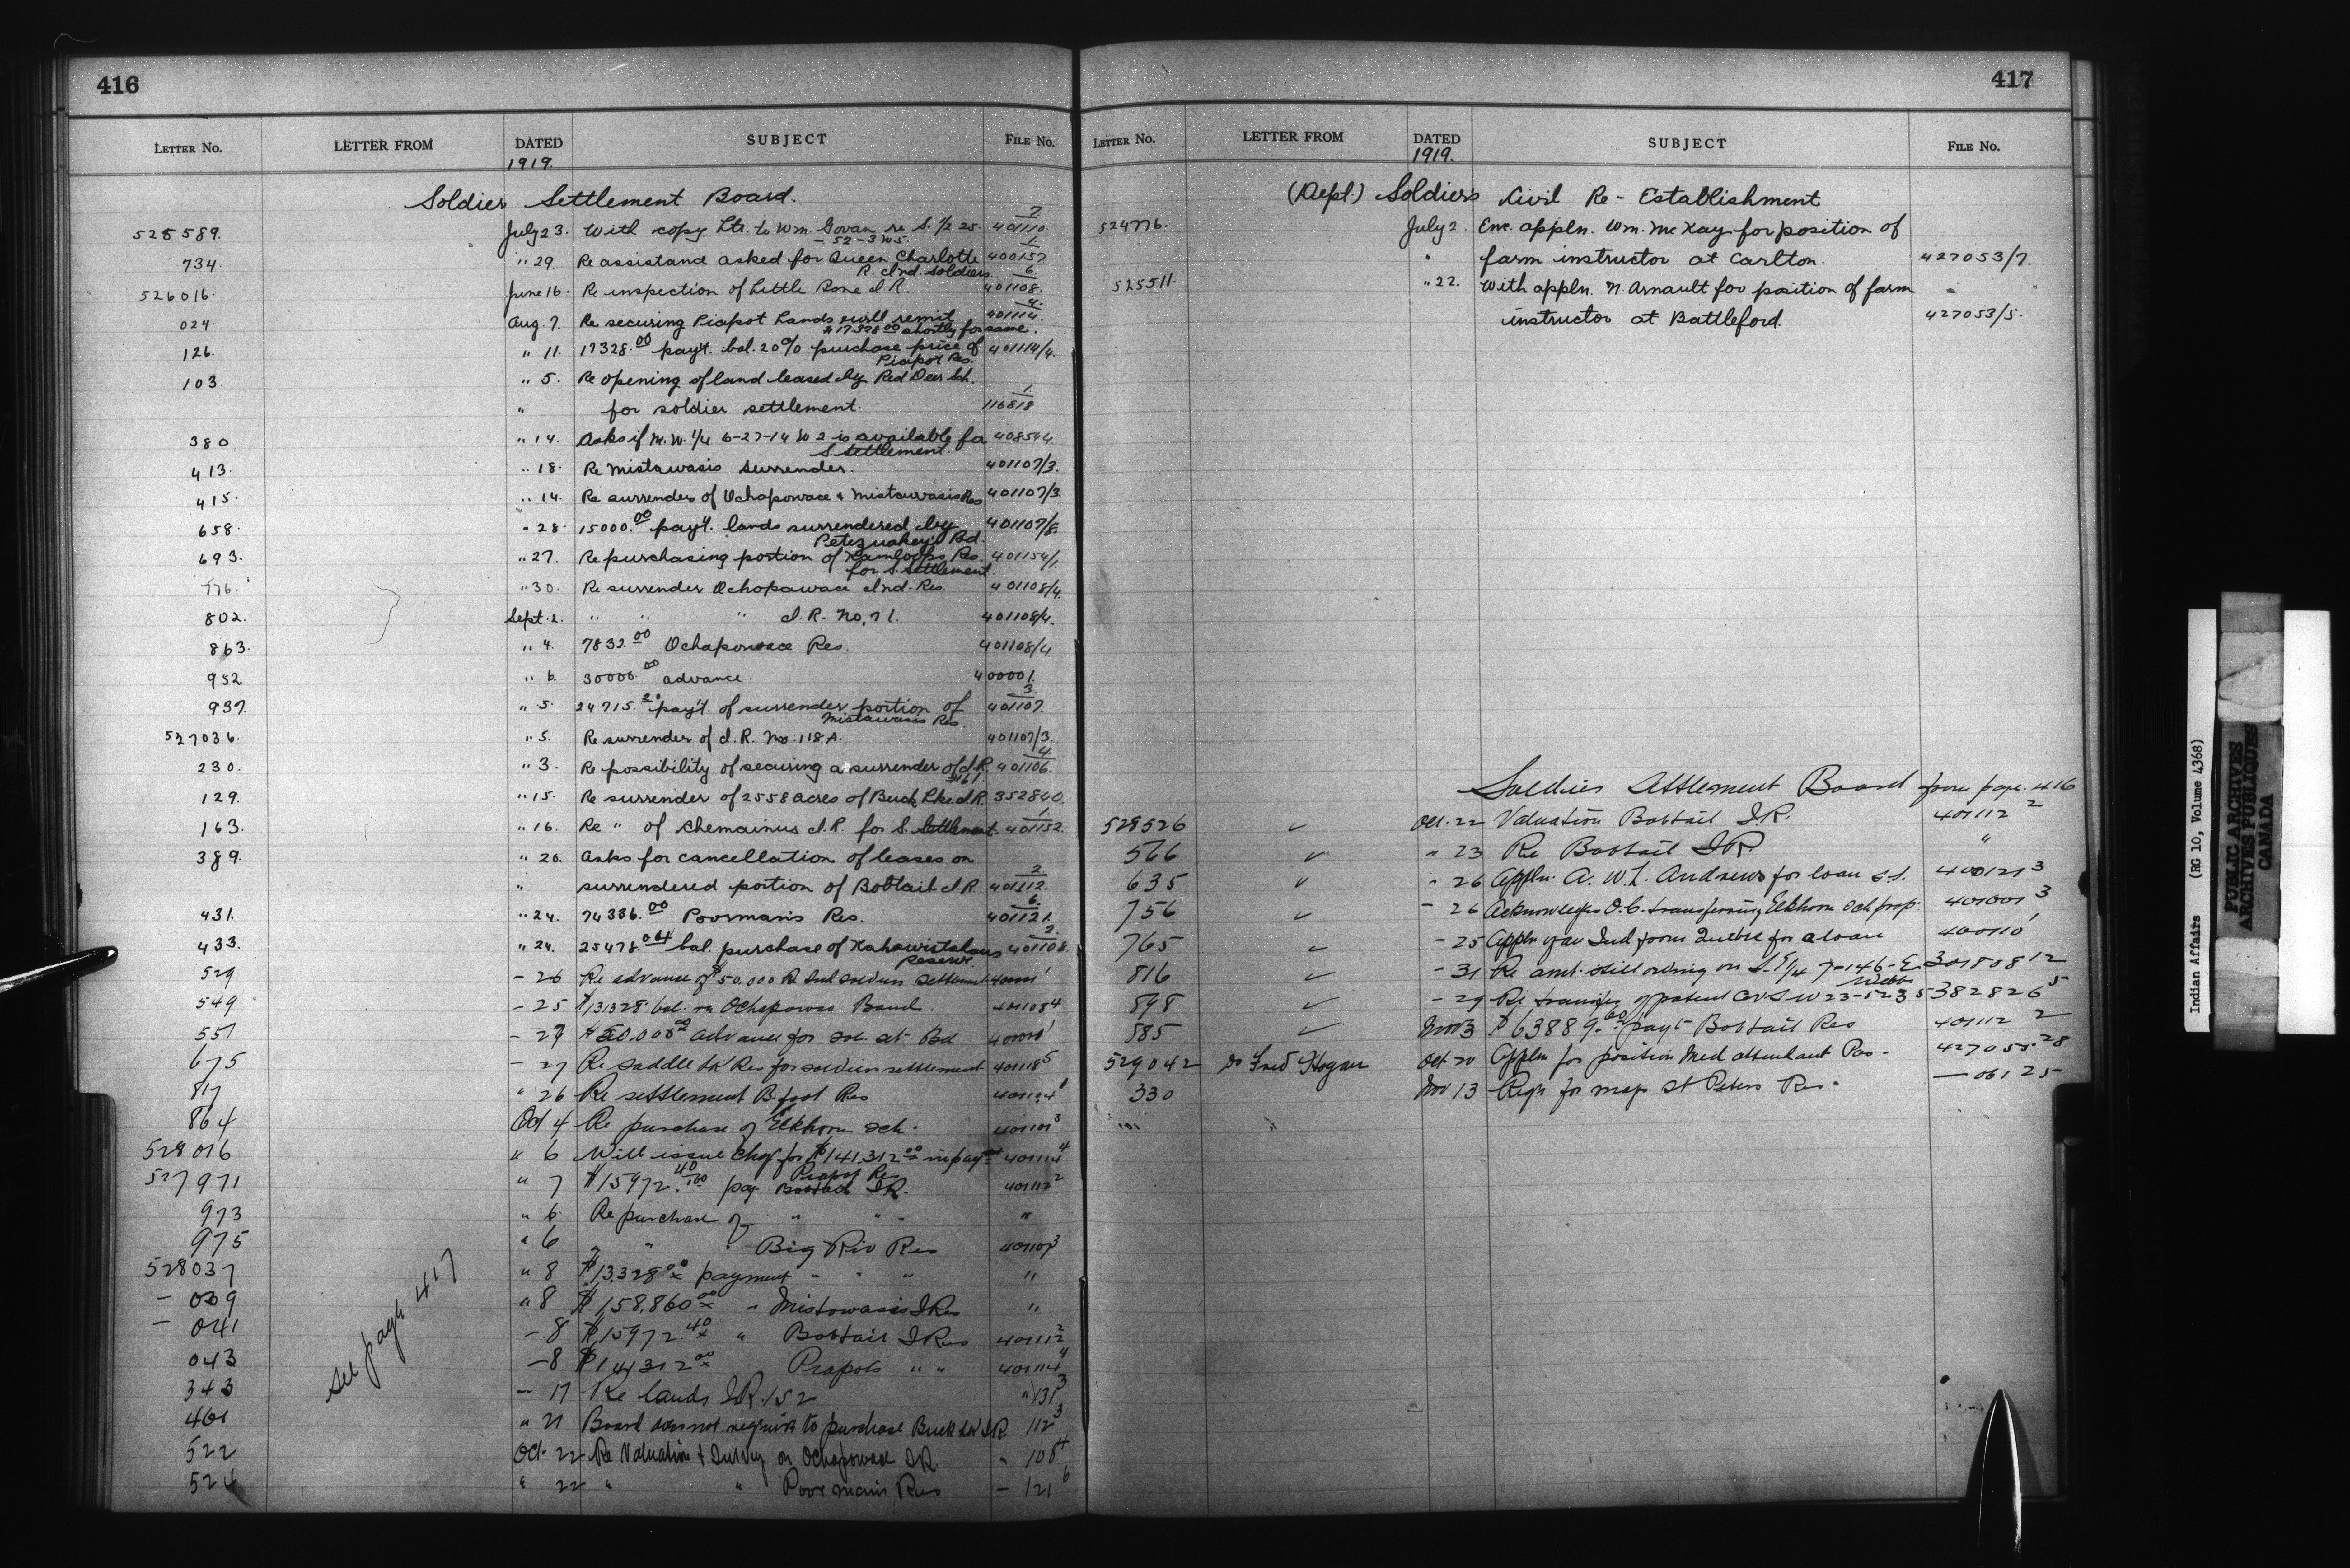 416
LETTER No. LETTER FROM DATED SUBJECT FILE No.
1919.
Soldier Settlement Board.
525589. July 23. With copy Ltr. to Wm. Govan re S. 1/2 25 - 52-3 W5. 401110/7
734. " 29. Re assistance asked for Queen Charlotte R. Ind. Soldiers. 400157/1
526016. June 16. Re inspection of Little Bone I.R. 401108/6.
024. Aug. 7. Re securing Piapot Lands & will remit $17328.00 shortly for same. 401114/4.
126. " 11. 17328.00 pay't. bal. 20% purchase price of Piapot Res. 401114/4.
103. " 5. Re opening of land leased by Red Deer Sch.
" for soldier settlement. 116818/1
380 " 14. Asks if N.W. 1/4 6-27-14 W 2 is available for S. Settlement. 408544
413. " 18. Re Mistawasis Surrender. 401107/3.
415. " 14. Re surrender of Ochapowace & Mistawasis Res 401107/3.
658. " 28. 15000.00 pay't. lands surrendered by Petequakey's Bd. 401107/8.
693. " 27. Re purchasing portion of Kamloops Res. for S. Settlement. 401154/1.
776. " 30. Re surrender Ochopawace Ind. Res. 401108/4.
802. Sept. 2. " " " I.R. No. 71. 401108/4.
863. " 4. 7832.00 Ochapowace Res. 401108/4
952 " 6. 30000.00 advance. 400001.
937. " 5. 24715.20 pay't. of surrender portion of Mistawasis Res. 401107/3.
527036. " 5. Re surrender of I.R. No. 118A. 401107/3.
230. " 3. Re possibility of securing a surrender of I.R. #161. 401106/4.
129. " 15. Re surrender of 2558 acres of Buck Lke I.R. 352840.
163. " 16. Re " of Chemainus I.R. for S. Settlement. 401152/1.
389. " 20. Asks for cancellation of leases on
" surrendered portion of Bobtail I.R. 401112/2.
431. " 24. 74336.00 Poorman's Res. 401121/6.
433. " 24. 25478.04 bal. purchase of Kahkewistahaws Reserve 401108/2.
529 - 26 Re advance of $50,000 Re Ind soldier settlement 400001 1
549 - 25 $131328 bal. re Ochapowace Band. 401108 4
551 - 29 $50,000.00 advance for sol. set. Bd 400001 1
675 - 27 Re Saddle Lk Res for soldier settlement 401118 5
817 " 26 Re settlement B.foot Res 401104 1
864 Oct 4 Re purchase of Elkhorn sch. 401001 3
528016 " 6 Will issue chq for $141,312.00 in payt Piapot Res 401114 4
527971 " 7 $15972.40 pay Bobtail IR. 401112 2
973 " 6 Re purchase of " " " "
975 " 6 " " " Big Riv Res 401107 3
528037 " 8 $13,328.00 payment " " " "
- 039 " 8 $158,860.00 " Mistowasis I Res "
- 041 - 8 $15972.40 " Bobtail I Res 401112 2
043 - 8 $141312.00 Piapots " " 401114 4
343 - 17 Re lands IR. 152 " 131 3
461 " 21 Board does not require to purchase Buck Lk I.R. 112 3
522 Oct 22 Re Valuation & Survey on Ochapowace IR. " 108 4
524 " 22 " " Poor mans Res - 121 6
see page 417
417
LETTER No. LETTER FROM DATED SUBJECT FILE No.
1919.
(Dept.) Soldiers Civil Re-Establishment
524776. July 2. Enc. appln. Wm. McKay for position of
" farm instructor at Carlton. 427053/7.
525511. " 22. With appln. N. Arnault for position of farm
instructor at Battleford. 427053/5.
Soldiers Settlement Board from page 416
528526 ✓ Oct. 22 Valuation Bobtail I.R. 401112 2
566 ✓ " 23 Re Bobtail IR. "
635 ✓ " 26 Appln. A. W. L. Andrews for loan s.s. 400121 3
756 ✓ - 26 Acknowledges O.C. transferring Elkhorn Sch prop. 401001 3
765 ✓ - 25 Appln of an Ind from Quebec for a loan 400110 1
816 ✓ - 31 Re amt. still owing on S.E 1/4 7-14 6-E. 301808 12
898 ✓ - 29 Re transfer of patent cov. SW 23-52 3 5 382826 5
585 ✓ Nov 3 $63889.60 payt Bobtail Res 401112 2
529042 Dr Fred Hogan Oct 20 Appln for position Med attendant Pas. 427055-28
330 Nov 13 Reqn for map St Peters Res. — 061 25
Indian Affairs (RG 10, Volume 4368)
PUBLIC ARCHIVES
ARCHIVES PUBLIQUES
CANADA